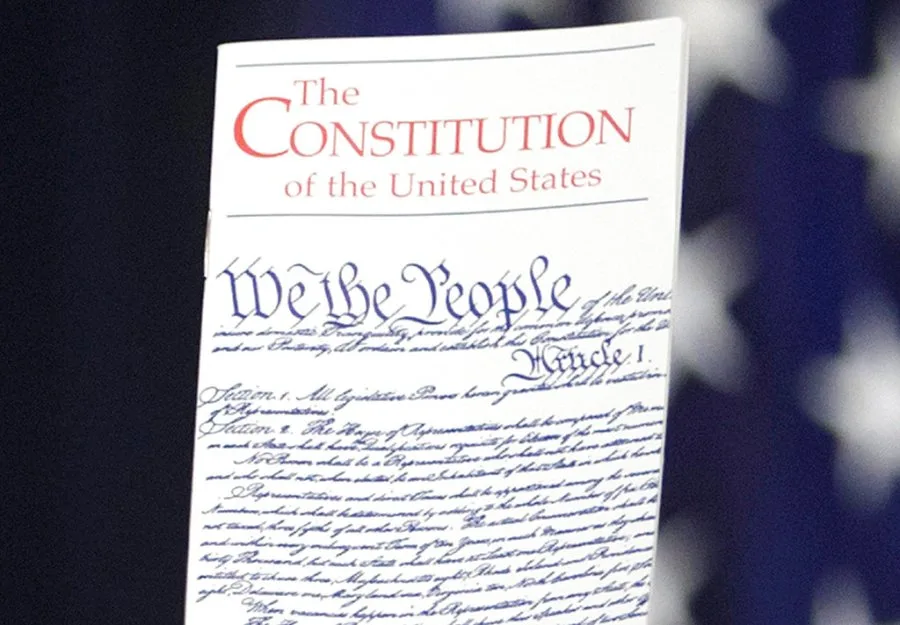 The
CONSTITUTION
of the United States
We the People of the Uni
insure domestic Tranquility, provide for the common defence, promo
and our Posterity, do ordain and establish this Constitution for the Un
Article I.
Section. 1. All legislative Powers herein granted shall be vested in
of Representatives.
Section. 2. The House of Representatives shall be composed of Mem
in each State shall have the Qualifications requisite for Electors of the most numerous
No Person shall be a Representative who shall not have attained to
and who shall not, when elected, be an Inhabitant of that State in which he shall
Representatives and direct Taxes shall be apportioned among the several
Numbers, which shall be determined by adding to the whole Number of free
not taxed, three fifths of all other Persons. The actual Enumeration shall be
and within every subsequent Term of ten Years, in such Manner as they shall
thirty Thousand, but each State shall have at Least one Representative; and
entitled to chuse three, Massachusetts eight, Rhode Island and Providence
eight, Delaware one, Maryland six, Virginia ten, North Carolina five,
When vacancies happen in the Representation from any State, the